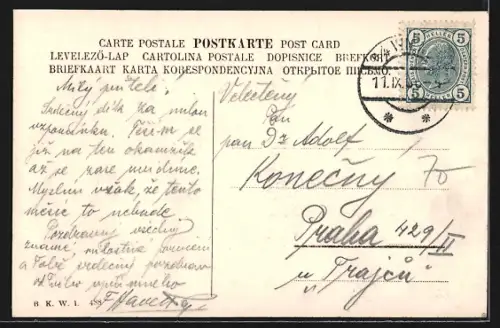 CARTE POSTALE POSTKARTE POST CARD
LEVELEZŐ-LAP CARTOLINA POSTALE DOPISNICE BREFKORT
BRIEFKAART KARTA KORESPONDENCYJNA ОТКРЫТОЕ ПИСЬМО.
5 HELLER 5
5 5
11.IX.
Milý příteli!
Srdečný dík za milou
vzpomínku. Těším se
již na ten okamžik
až se zase uvidíme.
Myslím však, že tento
měsíc to nebude.
Pozdravuj všechny
známé
a Tobě srdečný pozdrav
od Tvého upřímného
Velectěný
Pan
pan Dr Adolf
Konečný
70
Praha 429/II
u „Trajců"
B. K. W. I.